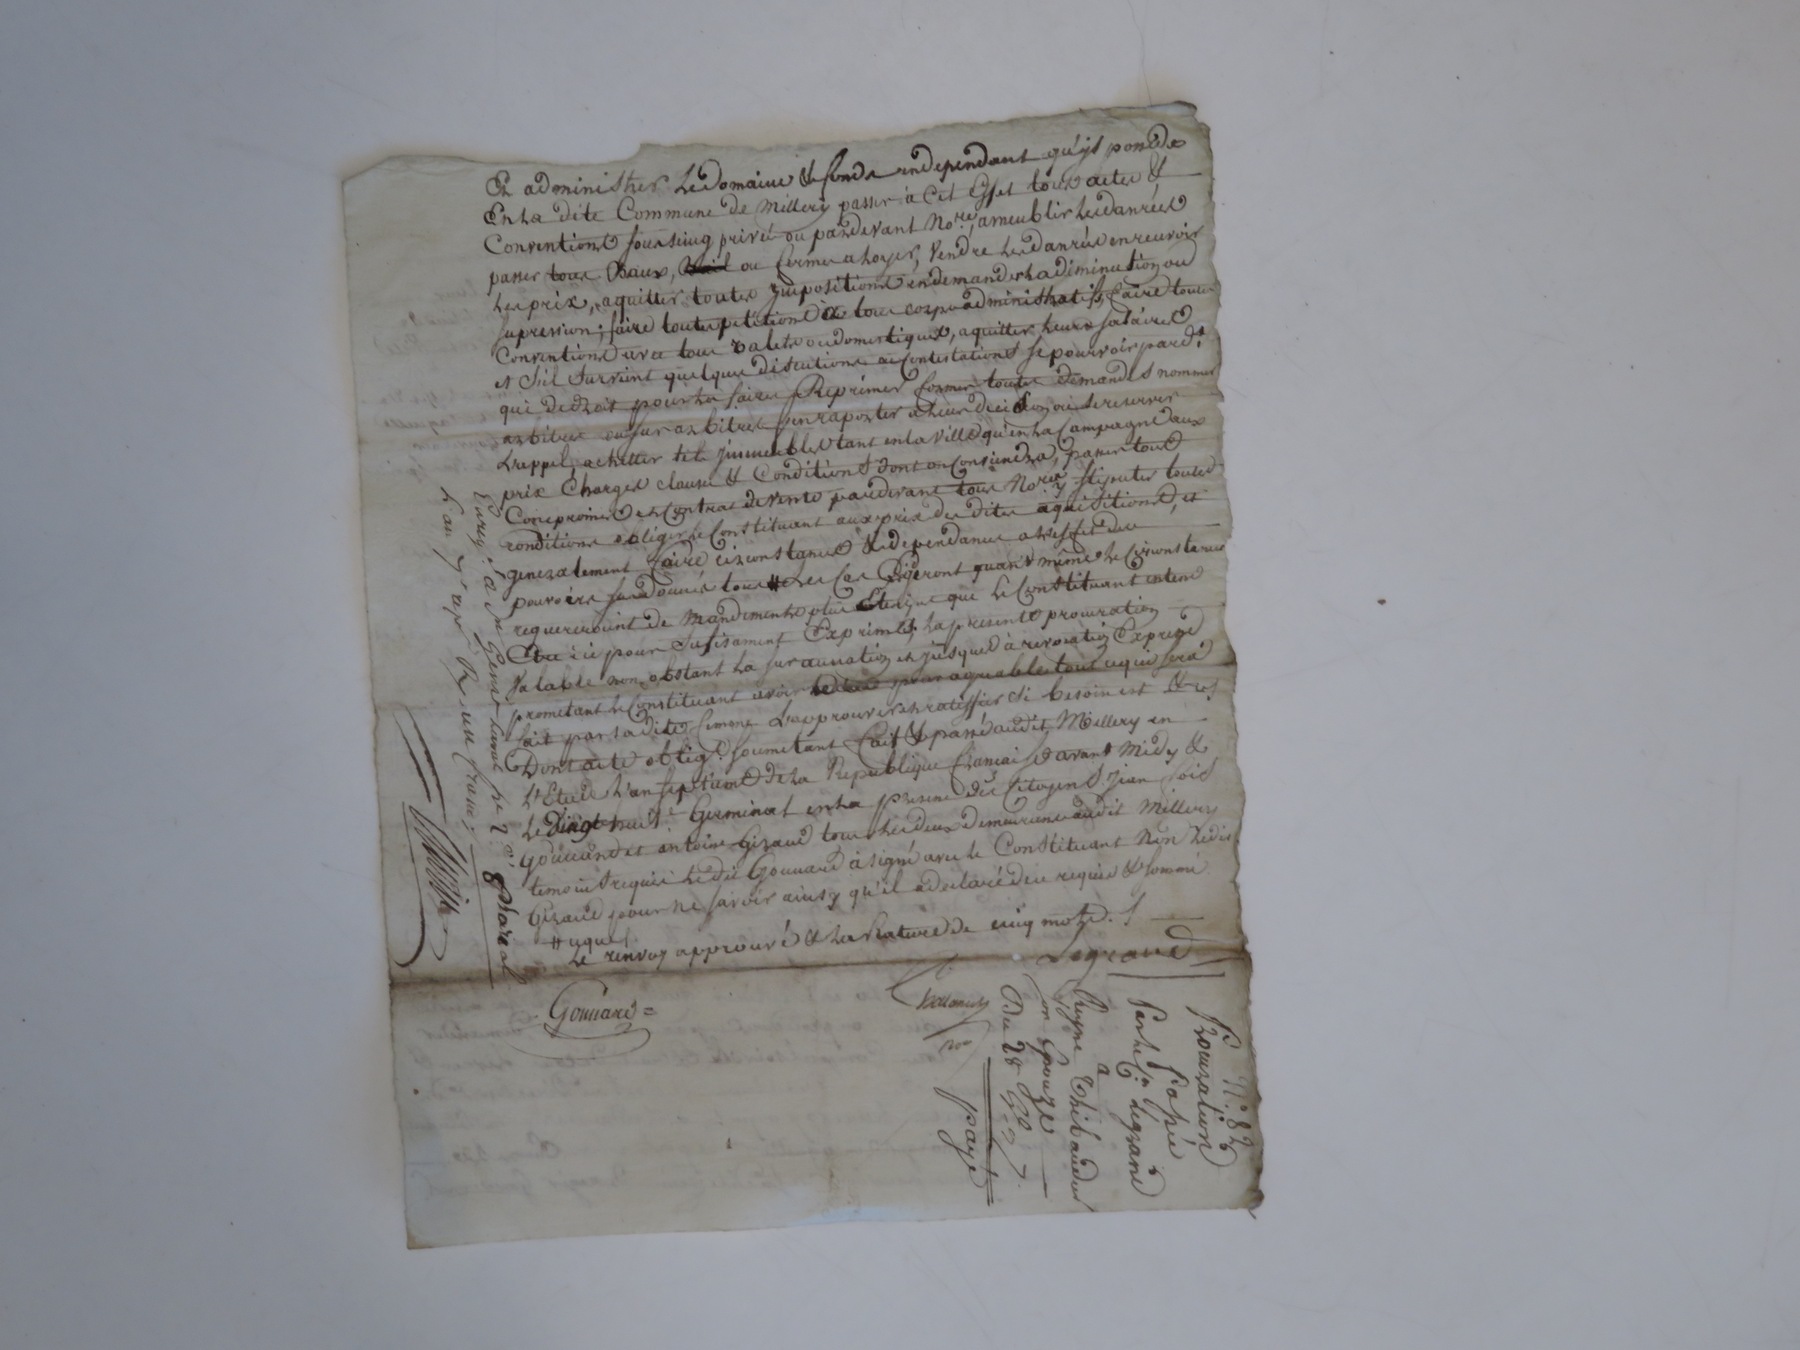 Et administrer Le domaine & fonds en dependant qu'il possede
En La dite Commune de Millery passer à Cet Effet tous actes &
Conventions sous seing privé ou pardevant Nore, ameublir Les danrées
passer tous Baux, ou fermes a Loyer, Vendre Les danrées en recevoir
Les prix, aquitter toutes Impositions en demander La diminution ou
supression; faire toutes petitions à tous corps administratifs, faire toutes
Conventions avec tous valets ou domestiques, aquitter Leurs salaires
et s'il survient quelques discutions ou Contestations se pourvoir pard.t
qui de droit pour La faire Reprimer former toutes demandes nommer
arbitres ou sur arbitres s'en raporter a Leur decision ou se reserver
L'appel, achetter tels jmmeubles tant en La Ville qu'en La Campagne aux
prix Charges clauses & Conditions dont on Conviendra, passer tous
Compromis et Contrat de vente pardevant tous Nores y stipuler toutes
conditions obliger Le Constituant aux prix des dites aquisitions, et
generalement faire circonstances & dependances a L'effet des
pouvoirs sus donnés tous # Les Cas Exigeront quand même Le Circonstances
requereroint de Mandements plus Etendus que Le Constituant entend
Etre ici pour sufisament Exprimés, La presente procuration
valable non obstant La surannation et jusques à revocation Expresse
prometant Le Constituant avoir pour agreable tout ce qui sera
fait par sa dite femme L'approuver et ratiffier si besoin est &
Dont acte oblig.t soumetant fait & passé audit Millery en
L'Etude L'an septieme de La Republique francaise avant Midy &
Le Vingt huit Germinal en La presence des Citoyens Jean
Gouuard et antoine Giraud tous Les deux demeurans audit Millery
temoins requis Le dit Gouuard à signé avec Le Constituant Non Ledit
Giraud pour ne savoir ainsy qu'il a declaré de ce requis & sommé
# ce que
Le renvoy approuvé & La Rature de cinq mots.
Legrand
Gouuard =
Nore
Enreg.t à
L'an 7 reçu Un franc
N.° 82
Procuration
Passée
Par Le C.en Legrand
a
Reyne Thibaudier
son Epouze
Du 28 Ger. 7.
payé